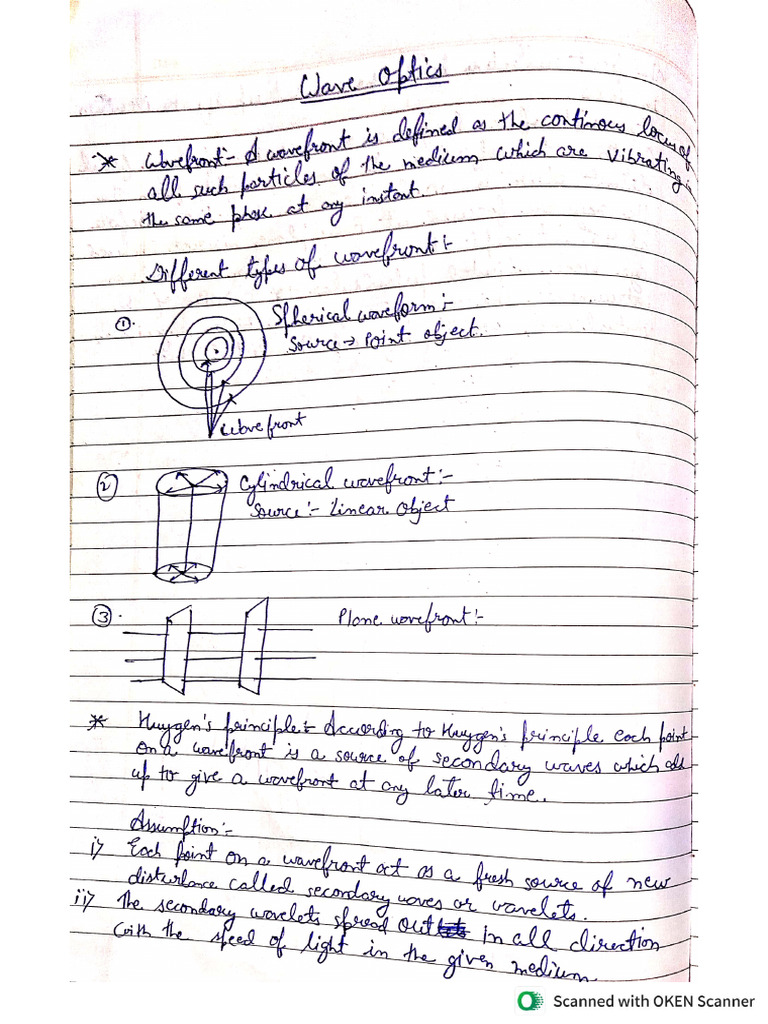 Wave Optics
* Wavefront:- A wavefront is defined as the continous locus of
all such particles of the medium which are vibrating in
the same phase at any instant.
Different types of wavefront:-
①. Spherical waveform:-
Source → Point object.
Wavefront
② Cylindrical wavefront:-
Source:- Linear Object
③. Plane wavefront:-
* Huygen's principle:- According to Huygen's principle each point
on a wavefront is a source of secondary waves which add
up to give a wavefront at any later time.
Assumption:-
i) Each point on a wavefront act as a fresh source of new
disturbance called secondary waves or wavelets.
ii) The secondary wavelets spread out in all direction
with the speed of light in the given medium.
Scanned with OKEN Scanner